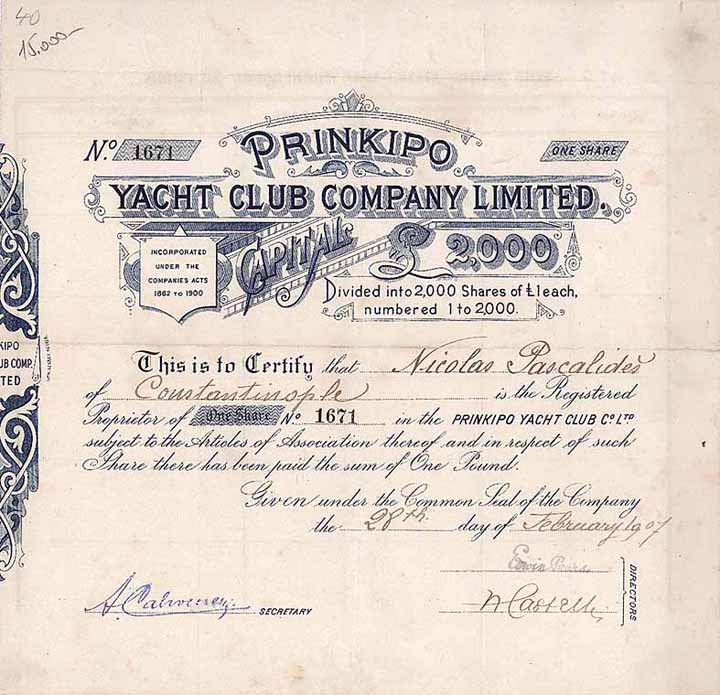 40
15.000-
PRINKIPO
No. 1671
ONE SHARE
YACHT CLUB COMPANY LIMITED.
CAPITAL £ 2,000
INCORPORATED
UNDER THE
COMPANIES ACTS
1862 TO 1900
Divided into 2,000 Shares of £1 each,
numbered 1 to 2,000.
KIPO
UB COMP.
TED
This is to Certify that Nicolas Pascalides
of Constantinople is the Registered
Proprietor of One Share No. 1671 in the PRINKIPO YACHT CLUB Co. LTD
subject to the Articles of Association thereof and in respect of such
Share there has been paid the sum of One Pound.
Given under the Common Seal of the Company
the 28th day of February 1907
Edwin Pears
SECRETARY
DIRECTORS